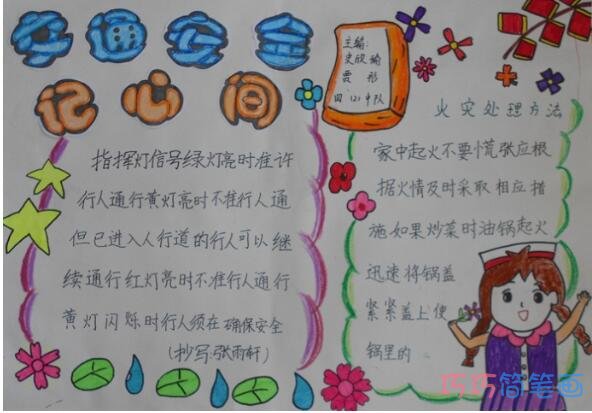 交通安全
记心间
主编:
史欣瑜
贾彤
四(2)中队
指挥灯信号绿灯亮时准许
行人通行黄灯亮时不准行人通
但已进入人行道的行人可以继
续通行红灯亮时不准行人通行
黄灯闪烁时行人须在确保安全
(抄写:张雨轩)
火灾处理方法
家中起火不要慌张应根
据火情及时采取相应措
施如果炒菜时油锅起火
迅速将锅盖
紧紧盖上使
锅里的
巧巧简笔画